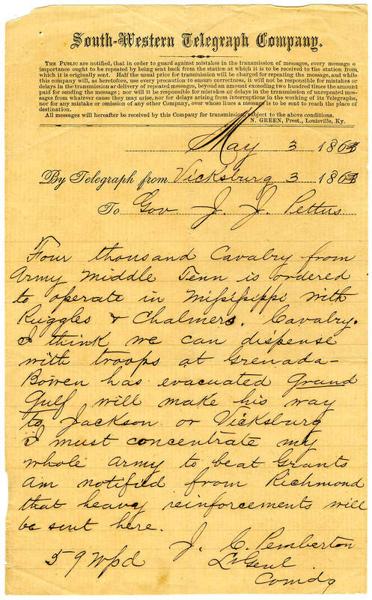 South-Western Telegraph Company.
THE PUBLIC are notified, that in order to guard against mistakes in the transmission of messages, every message of
importance ought to be repeated by being sent back from the station at which it is to be received to the station from
which it is originally sent. Half the usual price for transmission will be charged for repeating the message, and while
this company will, as heretofore, use every precaution to ensure correctness, it will not be responsible for mistakes or
delays in the transmission or delivery of repeated messages, beyond an amount exceeding two hundred times the amount
paid for sending the message; nor will it be responsible for mistakes or delays in the transmission of unrepeated mes-
sages from whatever cause they may arise, nor for delays arising from interruptions in the working of its Telegraphs,
nor for any mistake or omission of any other Company, over whose lines a message is to be sent to reach the place of
destination.
All messages will hereafter be received by this Company for transmission subject to the above conditions.
N. GREEN, Prest., Louisville, Ky.
May 3 1863
By Telegraph from Vicksburg 3 1863
To Gov. J. J. Pettus
Four thousand Cavalry from
Army Middle Tenn is ordered
to operate in Missisippi with
Ruggles & Chalmers. Cavalry.
I think we can dispense
with troops at Grenada-
Bowen has evacuated Grand
Gulf will make his way
to Jackson or Vicksburg
I must concentrate my
whole army to beat Grants
am notified from Richmond
that heavy reinforcements will
be sent here.
J. C. Pemberton
59 Wpd Lt Genl
Comdg